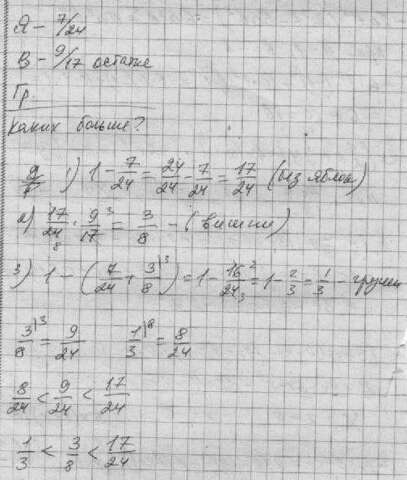 Я - 7/24
В - 9/17 остатке
Гр.
каких больше?
1) 1 - 7/24 = 24/24 - 7/24 = 17/24 (без яблок)
2) 17/24 · 9/17 = 3/8 - (вишни)
3) 1 - (7/24 + 3/8) = 1 - 16/24 = 1 - 2/3 = 1/3 - груши
3/8 = 9/24 1/3 = 8/24
8/24 < 9/24 < 17/24
1/3 < 3/8 < 17/24